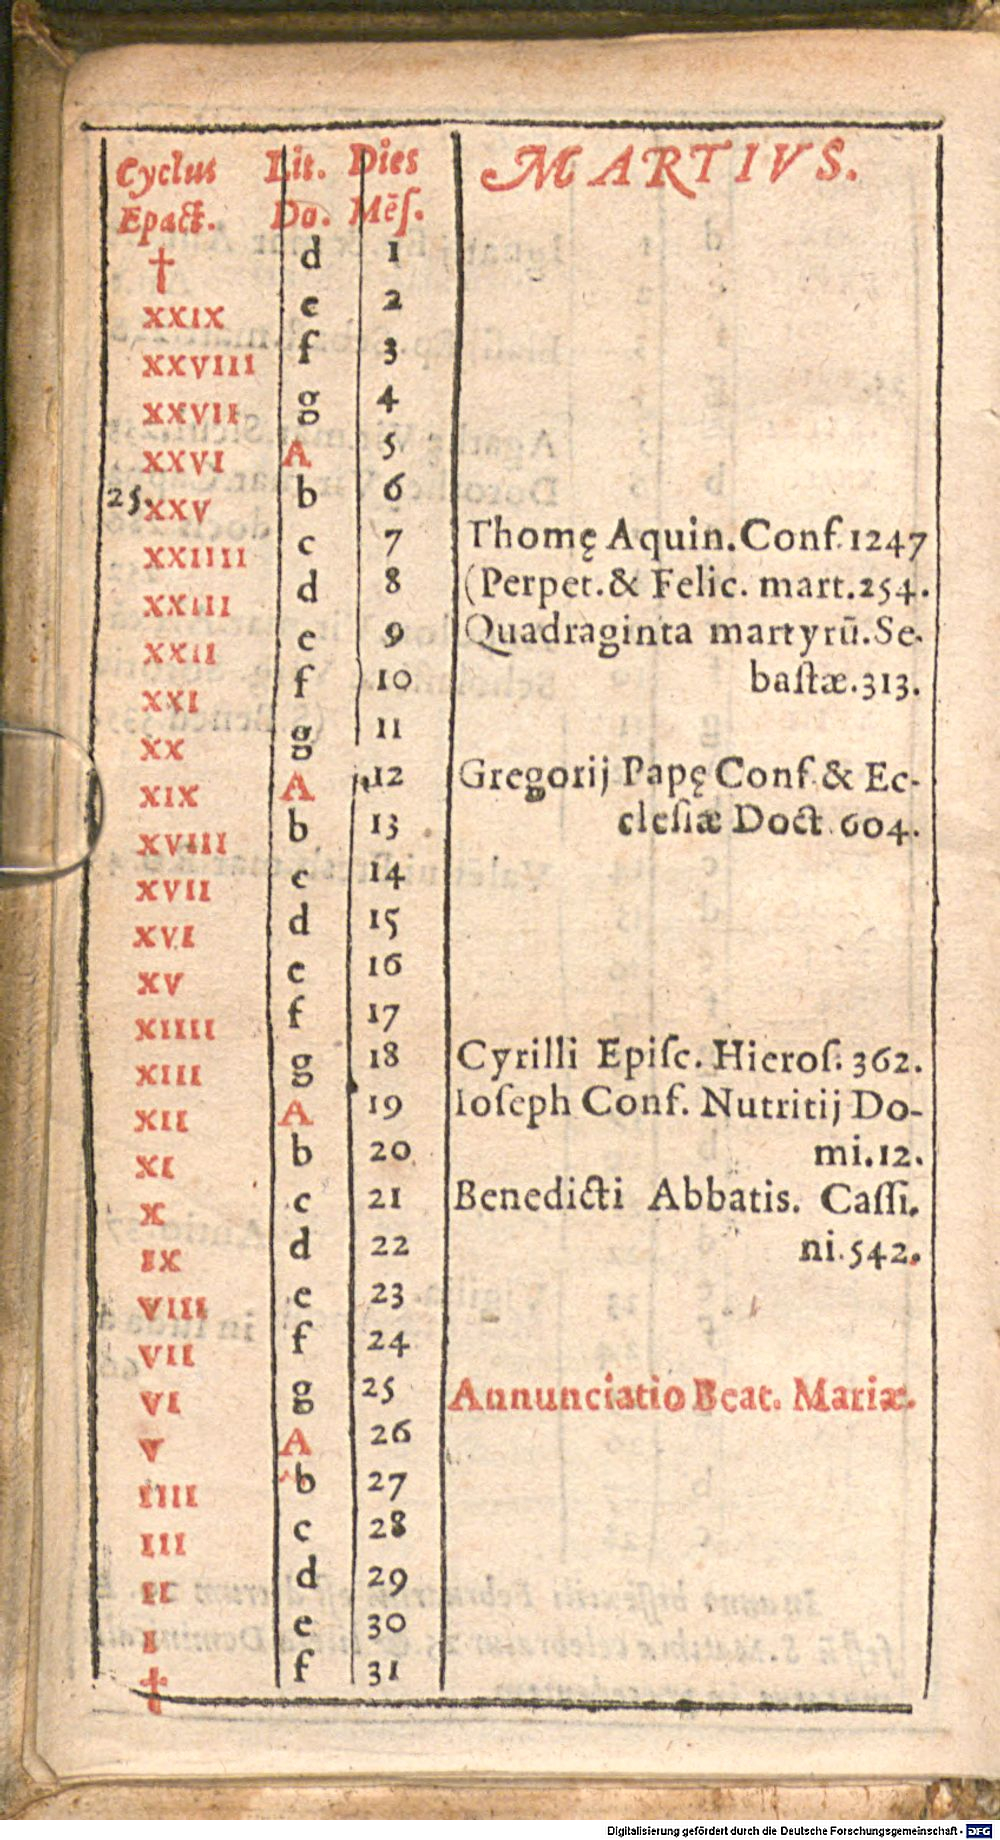 Cyclus Lit. Dies MARTIVS.
Epact. Do. Mēſ.
† d 1
XXIX e 2
XXVIII f 3
XXVII g 4
XXVI A 5
25. XXV b 6
XXIIII c 7 Thomę Aquin. Conf. 1247
XXIII d 8 (Perpet. & Felic. mart. 254.
XXII e 9 Quadraginta martyrū. Se-
XXI f 10 baſtæ. 313.
XX g 11
XIX A 12 Gregorij Papę Conf. & Ec-
XVIII b 13 cleſiæ Doct. 604.
XVII c 14
XVI d 15
XV e 16
XIIII f 17
XIII g 18 Cyrilli Epiſc. Hieroſ. 362.
XII A 19 Ioſeph Conf. Nutritij Do-
XI b 20 mi. 12.
X c 21 Benedicti Abbatis. Caſſi.
IX d 22 ni. 542.
VIII e 23
VII f 24
VI g 25 Annunciatio Beat. Mariæ.
V A 26
IIII b 27
III c 28
II d 29
I e 30
† f 31
Digitalisierung gefördert durch die Deutsche Forschungsgemeinschaft - DFG